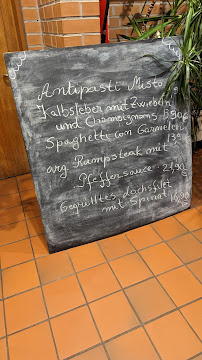 Antipasti Misto 9
Kalbsleber mit Zwiebeln
und Champignons
Spaghetti con Garnelen
arg. Rumpsteak mit
Pfeffersauce 21,90
Gegrilltes Lachsfilet
mit Spinat 16,90